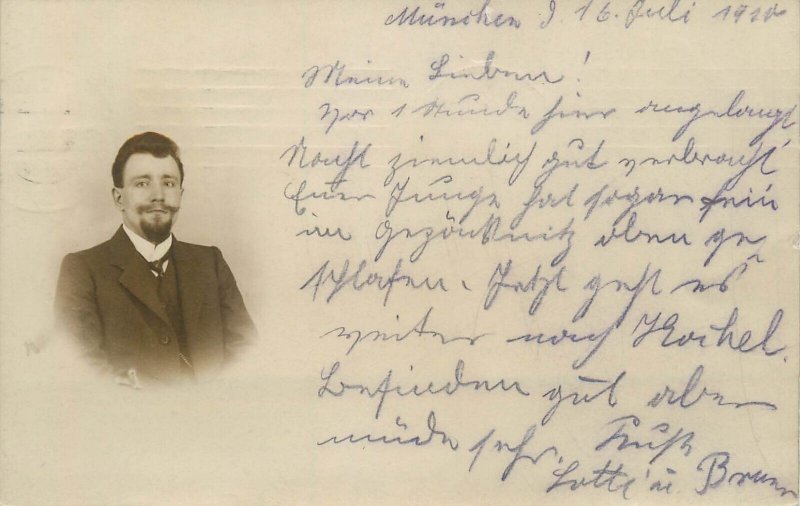 München d. 16. Juli 1910
Meine Lieben!
vor 1 Stunde hier angelangt
Nacht ziemlich gut verbracht
Euer Junge hat sogar fein
im oben ge-
schlafen. Jetzt geht es
weiter nach Kochel.
Befinden gut aber
müde sehr. Kuß
Lotte u. Bruno